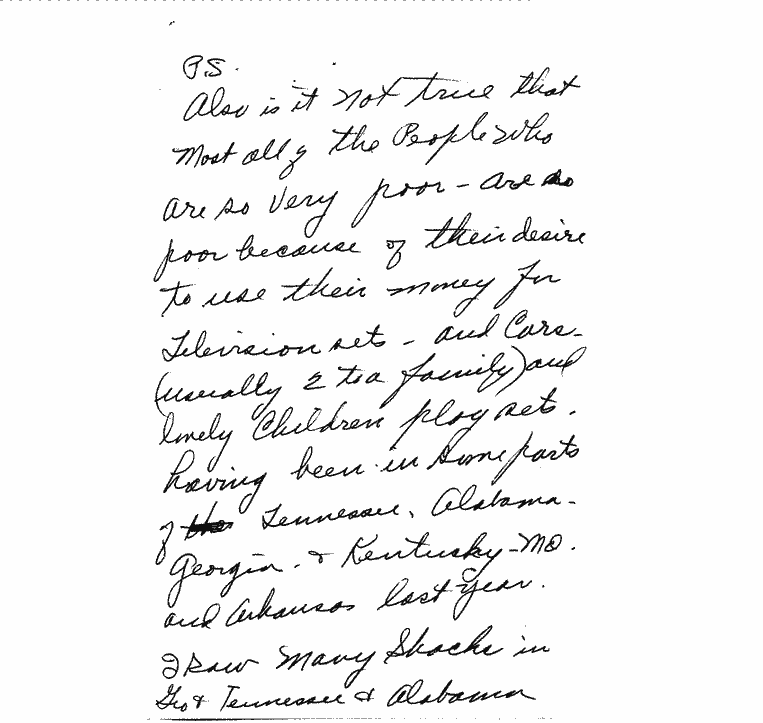 P.S.
Also is it not true that
Most all of the People who
are so very poor - are so
poor because of their desire
to use their money for
Television sets - and Cars -
(usually 2 to a family) and
lovely Children play sets.
having been in some parts
of the Tennessee, Alabama -
Georgia. & Kentusky - MO.
and Arkansas last year.
I saw Many Shacks in
Geo & Tennessee & Alabama